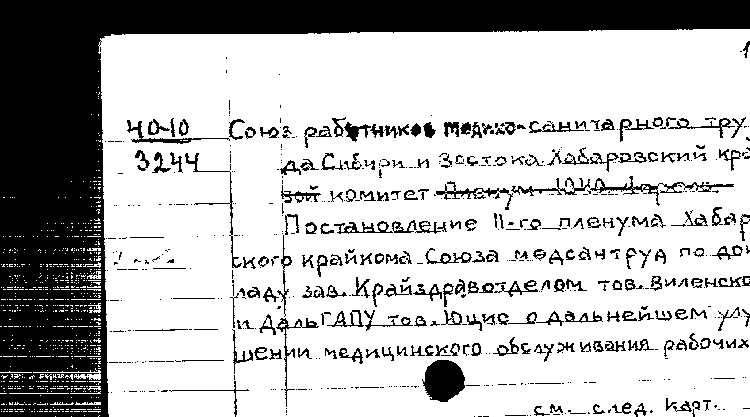 1
40-10 Союз работников медико-санитарного тру
3244 да Сибири и Востока Хабаровский кра
вой комитет Пленум 1940 Апрель
Постановление II-го пленума Хабар
ского крайкома Союза медсантруд по док
ладу зав. Крайздравотделом тов. Виленско
и ДальГАПУ тов. Юцис о дальнейшем улу
шении медицинского обслуживания рабочих
см. след. карт.